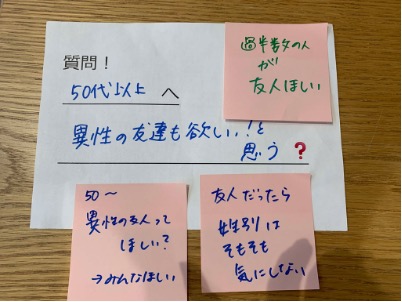 質問！
50代以上 へ
異性の友達も欲しい！と
思う ？
過半数の人
が
友人ほしい
50〜
異性の友人って
ほしい？
→みんなほしい
友人だったら
姓別は
そもそも
気にしない